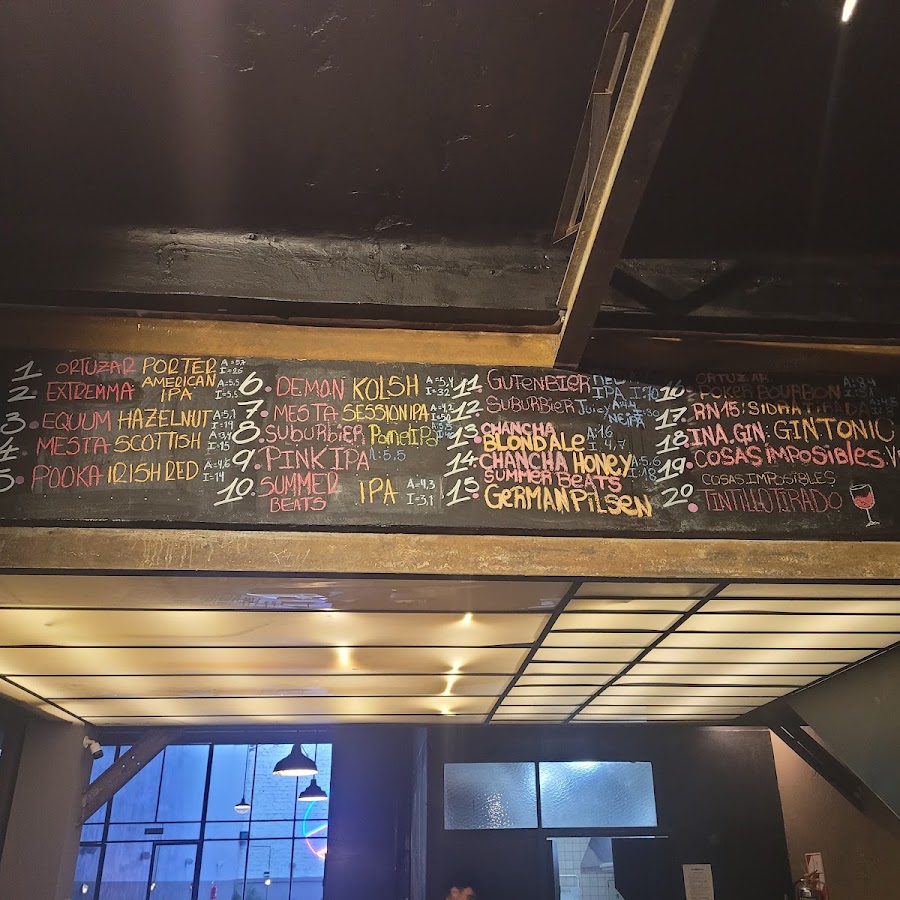 1 ORTUZAR PORTER A:5.7
2 EXTREMMA AMERICAN IPA A:5.5
3. EQUUM HAZELNUT A:5.1 I:19
4. MESTA SCOTTISH I:15
5. POOKA IRISH RED A:4.6 I:19
6. DEMON KOLSH A:5.4 I:32
7. MESTA SESSION IPA A:4.3
8. SUBURBIER PomelIPA
9. PINK IPA A:5.5
10. SUMMER BEATS IPA A:4.3 I:31
11. GUTENBIER IPA
12. SUBURBIER Juicy NEIPA
13. CHANCHA BLOND ALE
14. CHANCHA HONEY A:5.6 I:18
15. SUMMER BEATS GERMAN PILSEN
16 ORTUZAR BOURBON A:8.4
17. RN15: SIDRA
18 INA.GIN: GINTONIC
19. COSAS IMPOSIBLES
20. COSAS IMPOSIBLES TINTILLO TIRADO